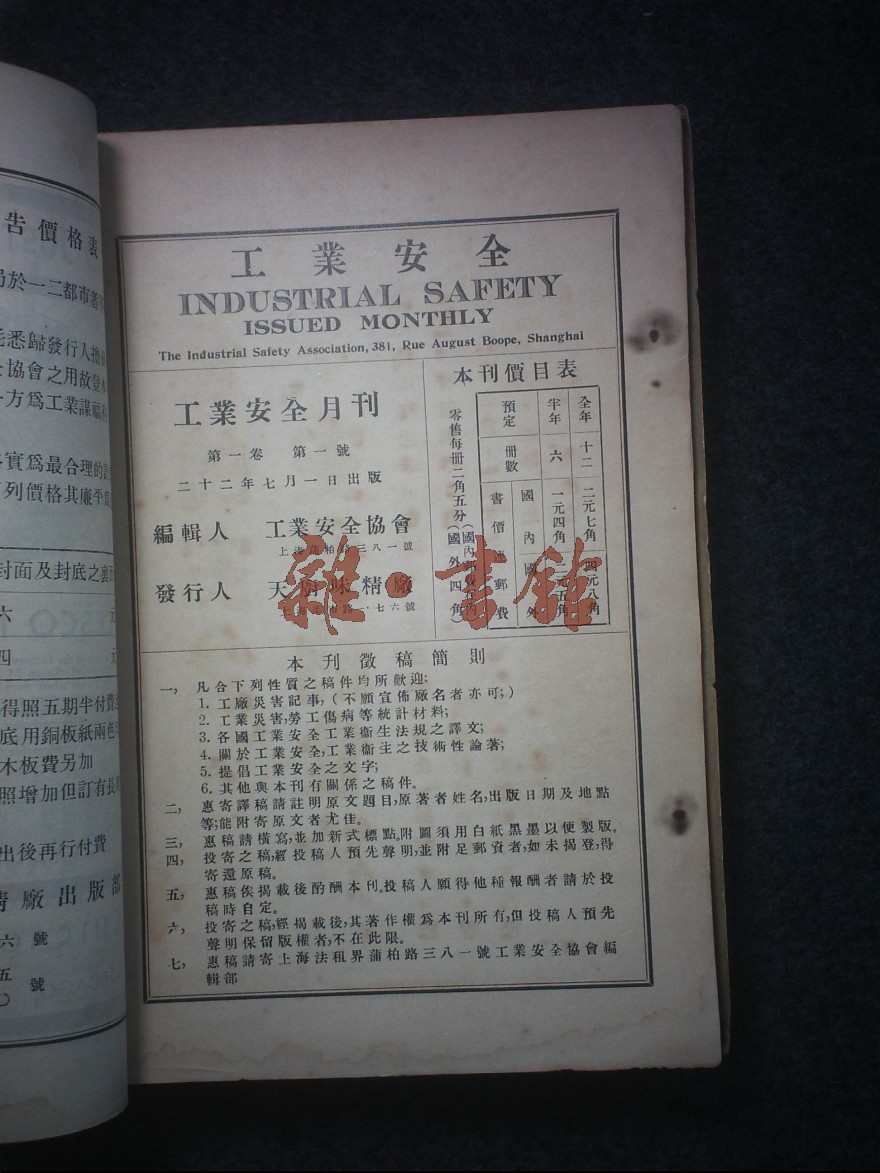 告價格表
局於一二都市者
悉歸發行人擔
協會之用故登
一方爲工業謀福利
實爲最合理的
列價格其廉平
封面及封底之裏
六
四
得照五期半付費
底用銅板紙兩色
木板費另加
照增加但訂有長
出後再行付費
精廠出版部
六號
五
號
工業安全
INDUSTRIAL SAFETY
ISSUED MONTHLY
The Industrial Safety Association, 381, Rue August Boope, Shanghai
工業安全月刊
第一卷 第一號
二十二年七月一日出版
編輯人 工業安全協會
上海蒲柏路三八一號
發行人 天廚味精廠
路一七六號
本刊價目表
全年 十二 二元七角 四元八角
半年 六 一元四角 二元五角
預定 冊數 國內 國外
書價連郵費
零售每冊二角五分(國內郵費在內 國外四角)
雜·書館
本刊徵稿簡則
一, 凡合下列性質之稿件均所歡迎:
1. 工廠災害記事,(不願宣佈廠名者亦可;)
2. 工業災害,勞工傷病等統計材料;
3. 各國工業安全工業衛生法規之譯文;
4. 關於工業安全,工業衛生之技術性論著;
5. 提倡工業安全之文字;
6. 其他與本刊有關係之稿件。
二, 惠寄譯稿請註明原文題目,原著者姓名,出版日期及地點
等;能附寄原文者尤佳。
三, 惠稿請橫寫,並加新式標點。附圖須用白紙黑墨以便製版。
四, 投寄之稿,經投稿人預先聲明,並附足郵資者,如未揭登,得
寄還原稿。
五, 惠稿俟揭載後酌酬本刊。投稿人願得他種報酬者請於投
稿時自定。
六, 投寄之稿,經揭載後,其著作權爲本刊所有,但投稿人預先
聲明保留版權者,不在此限。
七, 惠稿請寄上海法租界蒲柏路三八一號工業安全協會編
輯部